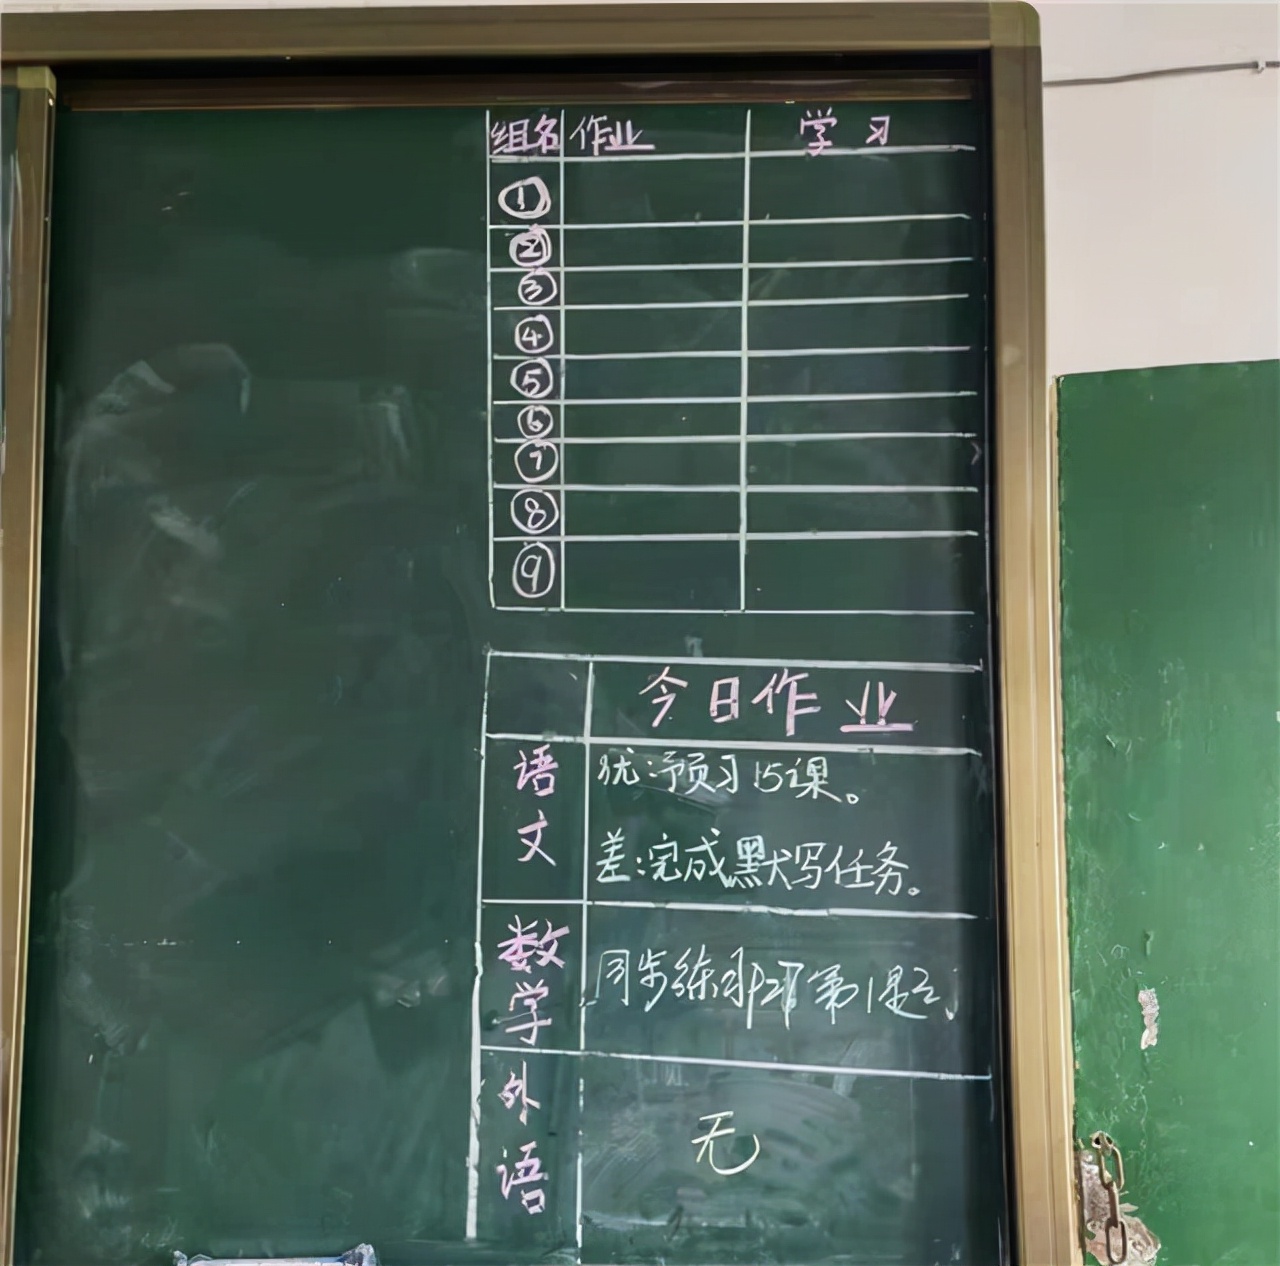 组名 作业 学习
①
②
③
④
⑤
⑥
⑦
⑧
⑨
今日作业
语文
优:预习15课。
差:完成默写任务。
数学
同步练习 第1课
外语
无